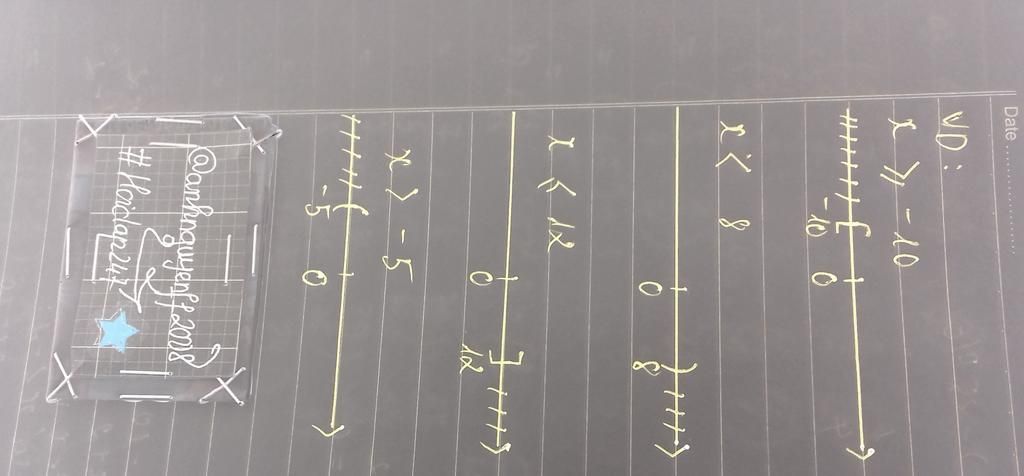 Date
VD:
x ⩾ -10
-10 0
x < 8
0 8
x ⩽ 12
0 12
x > -5
-5 0
@anhnguyenff2008
#Hoidan247